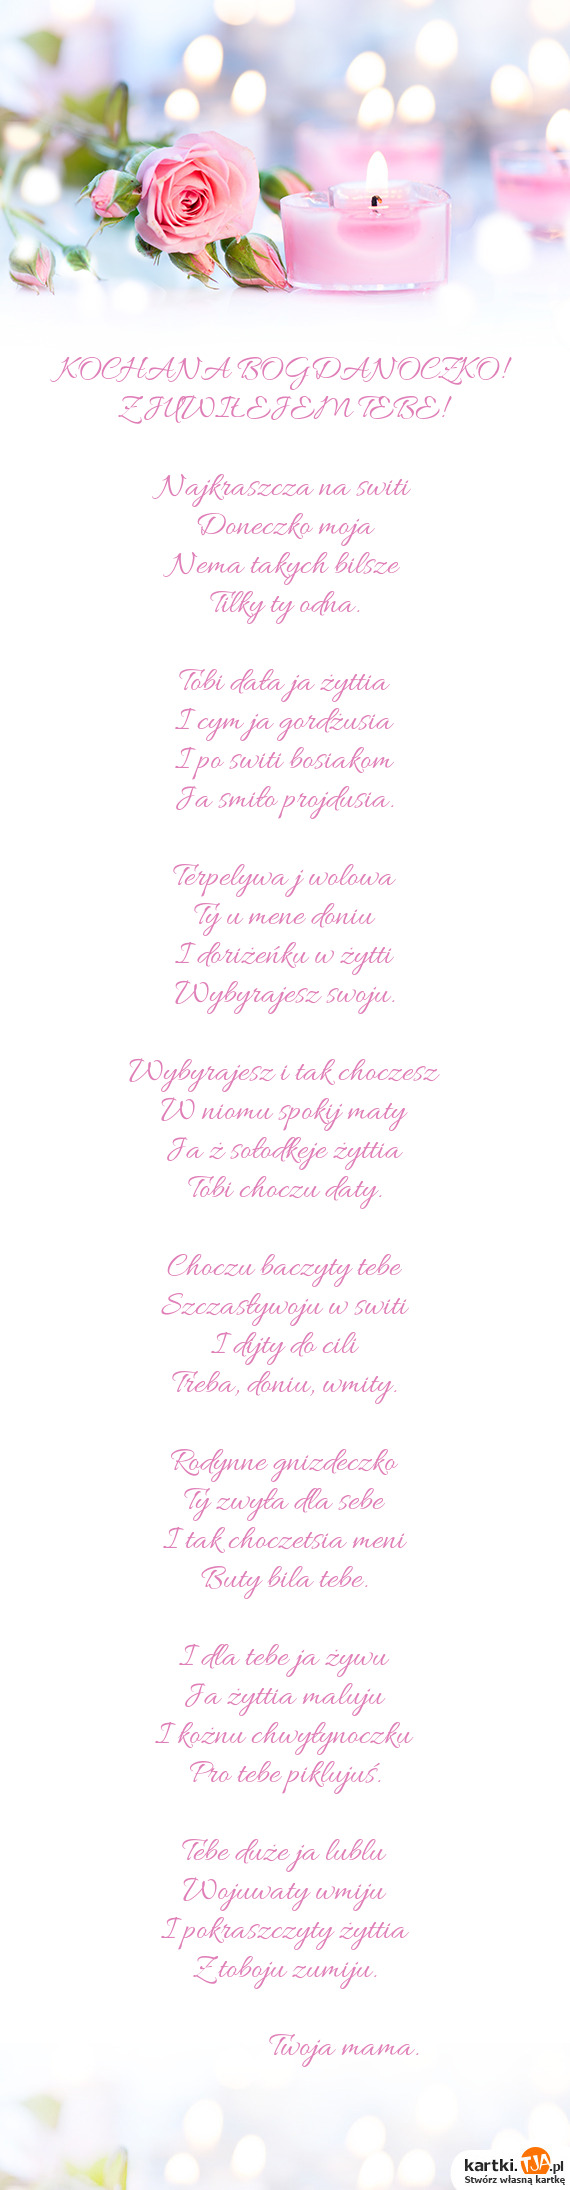 KOCHANA BOGDANOCZKO!
Z JUWIŁEJEM TEBE!
Najkraszcza na switi
Doneczko moja
Nema takych bilsze
Tilky ty odna.
Tobi dała ja żyttia
I cym ja gordżusia
I po switi bosiakom
Ja smiło projdusia.
Terpelywa j wolowa
Ty u mene doniu
I doriżeńku w żytti
Wybyrajesz swoju.
Wybyrajesz i tak choczesz
W niomu spokij maty
Ja ż sołodkeje żyttia
Tobi choczu daty.
Choczu baczyty tebe
Szczasływoju w switi
I dijty do cili
Treba, doniu, wmity.
Rodynne gnizdeczko
Ty zwyła dla sebe
I tak choczetsia meni
Buty bila tebe.
I dla tebe ja żywu
Ja żyttia maluju
I kożnu chwyłynoczku
Pro tebe piklujuś.
Tebe duże ja lublu
Wojuwaty wmiju
I pokraszczyty żyttia
Z toboju zumiju.
Twoja mama.
kartki.TJA.pl
Stwórz własną kartkę